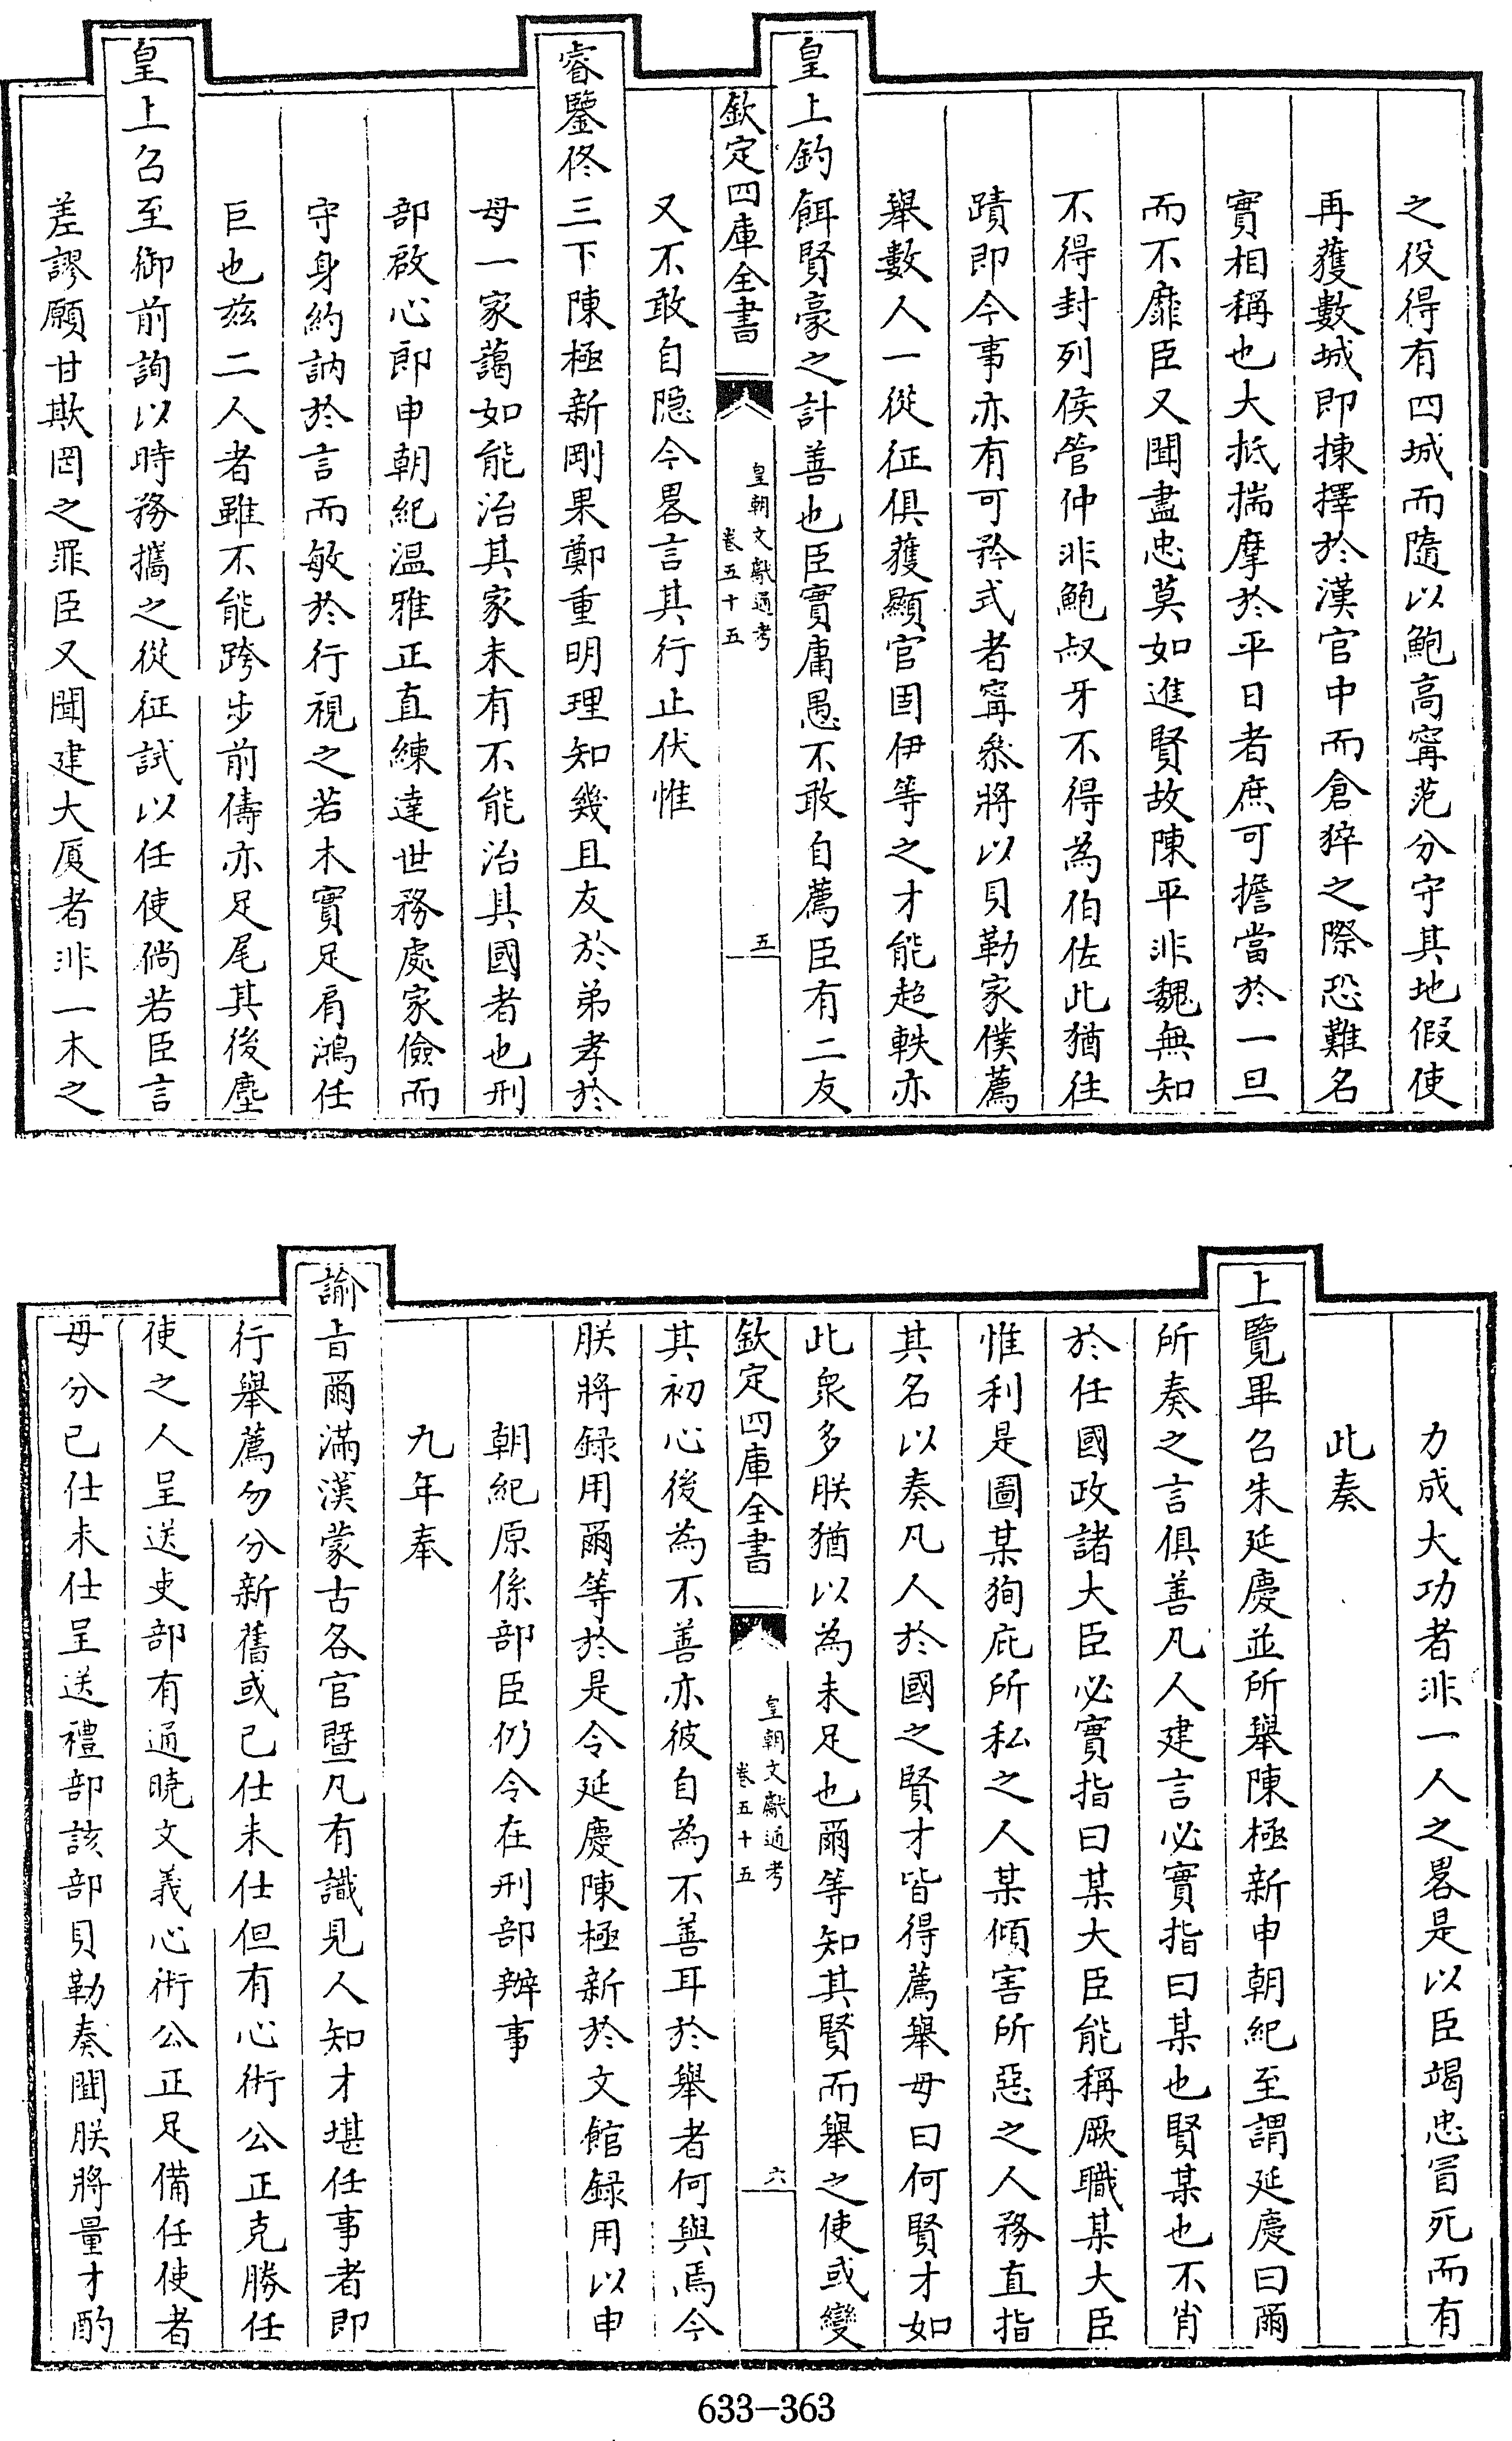 之役得有四城而隨以鮑高寗范分守其地假使
再獲數城即揀擇於漢官中而倉猝之際恐難名
實相稱也大抵揣摩於平日者庶可擔當於一旦
而不靡臣又聞盡忠莫如進賢故陳平非魏無知
不得封列侯管仲非鮑叔牙不得為伯佐此猶往
蹟即今事亦有可矜式者寗叅將以貝勒家僕薦
舉數人一從征俱獲顯官固伊等之才能超軼亦
皇上釣餌賢豪之計善也臣實庸愚不敢自薦臣有二友
欽定四庫全書
皇朝文獻通考
卷五十五
五
又不敢自隠今畧言其行止伏惟
睿鑒佟三下陳極新剛果鄭重明理知幾且友於弟孝於
母一家藹如能治其家未有不能治其國者也刑
部啟心郎申朝紀温雅正直練達世務處家儉而
守身約訥於言而敏於行視之若木實足肩鴻任
巨也兹二人者雖不能跨步前儔亦足尾其後塵
皇上召至御前詢以時務攜之從征試以任使倘若臣言
差謬願甘欺罔之罪臣又聞建大厦者非一木之
力成大功者非一人之畧是以臣竭忠冒死而有
此奏
上覽畢召朱延慶並所舉陳極新申朝紀至謂延慶曰爾
所奏之言俱善凡人建言必實指曰某也賢某也不肖
於任國政諸大臣必實指曰某大臣能稱厥職某大臣
惟利是圖某狥庇所私之人某傾害所惡之人務直指
其名以奏凡人於國之賢才皆得薦舉毋曰何賢才如
此衆多朕猶以為未足也爾等知其賢而舉之使或變
欽定四庫全書
皇朝文獻通考
卷五十五
六
其初心後為不善亦彼自為不善耳於舉者何與焉今
朕將録用爾等於是令延慶陳極新於文館録用以申
朝紀原係部臣仍令在刑部辦事
九年奉
諭旨爾滿漢蒙古各官暨凡有識見人知才堪任事者即
行舉薦勿分新舊或已仕未仕但有心術公正克勝任
使之人呈送吏部有通曉文義心術公正足備任使者
毋分已仕未仕呈送禮部該部貝勒奏聞朕將量才酌
633-363